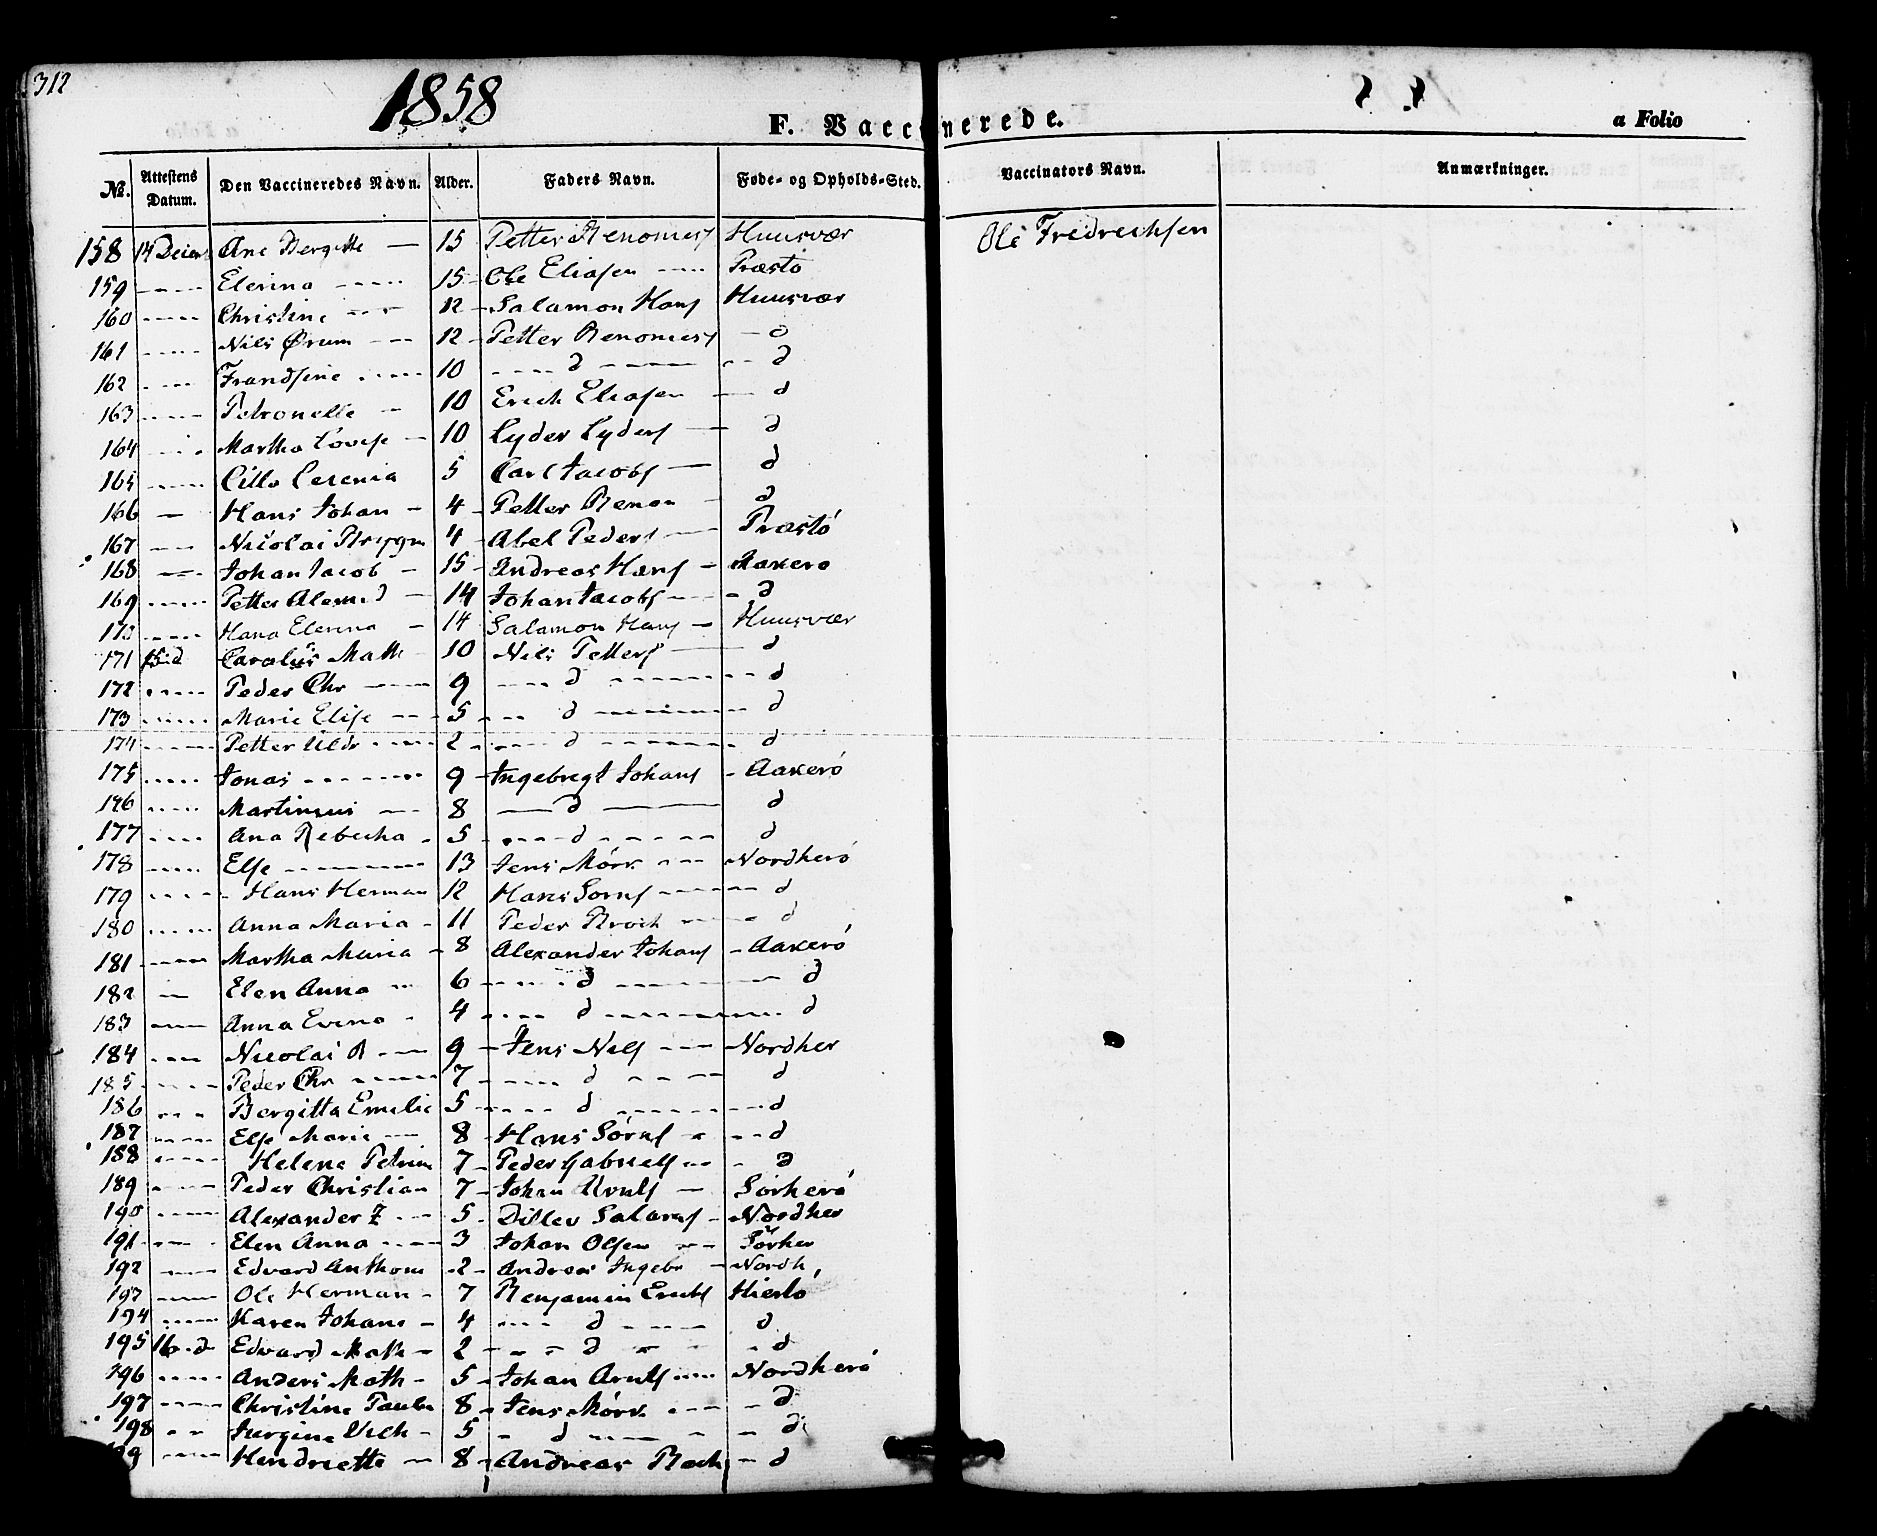 312
1858
F. Vaccinerede.
a Folio
No. Attestens Datum. Den Vaccineredes Navn. Alder. Faders Navn. Føde- og Opholds-Sted. Vaccinators Navn. Anmærkninger.
158 14 Ane Bergitte — 15 Petter Huusvær Ole Fredrechsen
159 Elerina 15 Ole Eliasen Præstö
160 Christine 12 Salamon Hans Huusvær
161 Nils Ørum 12 Petter d
162 Frandsine 10 d d
163 Petronelle 10 Erich Eliasen d
164 Martha Lovise 10 Lyder Lyders d
165 5 Carl Jacobs d
166 Hans Johan 4 Petter d
167 Nicolai 4 Abel Peders Præstö
168 Johan Jacob 15 Andreas Hans Aakerø
169 Petter 14 Johan Jacobs d
170 Hana Elerina 14 Salamon Hans Huusvær
171 15 d Math 10 Nils Petters d
172 Peder Chr 9 d d
173 Marie Elise 5 d d
174 Petter 2 d d
175 Jonas 9 Ingebregt Johans Aakerö
176 Martinus 8 d d
177 Ana Rebecka 5 d d
178 Else 13 Jens Mörk Nordherö
179 Hans Herman 12 Hans d
180 Anna Maria 11 Peder d
181 Martha Maria 8 Alexander Johans Aakerö
182 Elen Anna 6 d d
183 Anna Evina 4 d d
184 Nicolai 9 Jens Nils Nordher
185 Peder Chr 7 d d
186 Bergitta Emelie 5 d d
187 Else Marie 8 Hans Sörns d
188 Helene 7 Peder Gabriels d
189 Peder Christian 7 Johan Sörherö
190 Alexander 5 Nordher
191 Elen Anna 3 Johan Olsen Sörher
192 Edvard Anthon 2 Andreas Ingebr Nordh
193 Ole Herman 7 Benjamin Hierlö
194 Karen Johane 4 d d
195 16 d Edvard Math 2 d d
196 Anders Math 5 Johan Arnts Nordherö
197 Christine 8 Jens Mörk d
198 Jurgine 5 d d
Hendriette 8 Andreas d